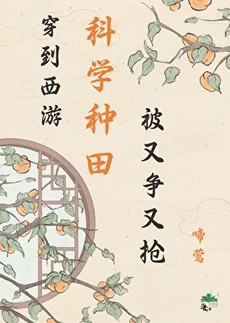 穿到西游
科学种田
被又争又抢
啼莺